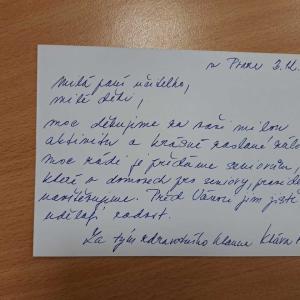 v Praze 3.12.
Milá paní učitelko,
milé děti,
moc děkujeme za vaši milou
aktivitu a krásně zaslané
moc rádi je předáme seniorům,
které v domovech pro seniory,
navštěvujeme. Před Vánoci jim jistě
udělají radost.
Za tým zdravotního klauna Klára